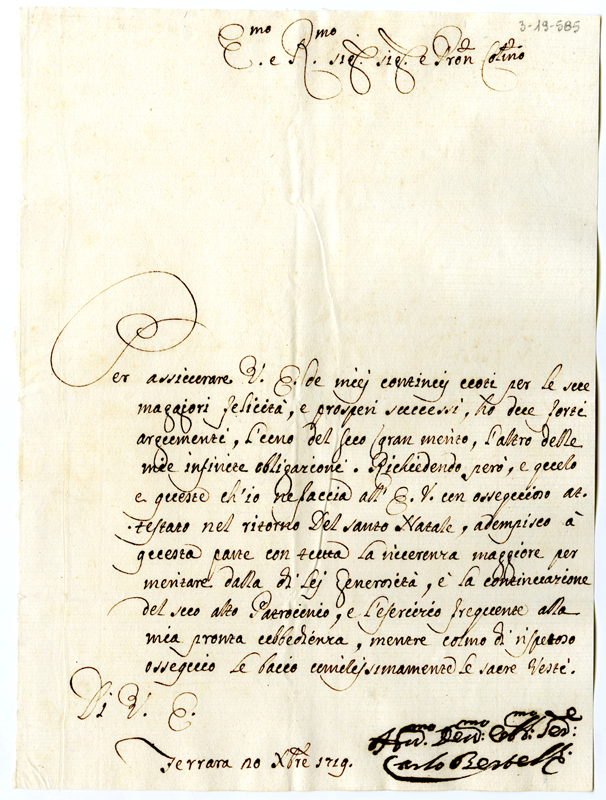 3-19-585
E.mo e R.mo sig.r sig.r e Pron Col.mo
Per assicurare V. E. de miei continui voti per le sue
maggiori felicità, e prosperi successi, ho due forti
argumenti, l'uno del suo gran merito, l'altro delle
mie infinite obligazioni. Richiedendo però, e quelo
e queste ch'io ne faccia all' E. V. un ossequioso at-
testato nel ritorno del santo Natale, adempisco à
questa parte con tutta la riverenza maggiore per
meritare dalla di lej Generosità, e la continuazione
del suo alto Patrocinio, e l'esercizio frequente alla
mia pronta ubbedienza, mentre colmo di rispetoso
ossequio le baccio umilissimamente le sacre Vesti.
Di V. E.
Ferrara 20 Xbre 1719.
Carlo Bertelli